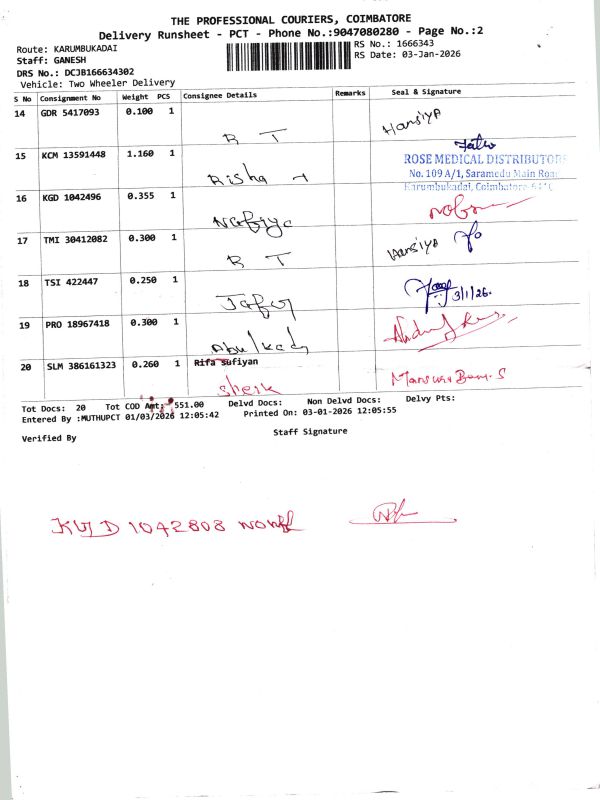 THE PROFESSIONAL COURIERS, COIMBATORE
Delivery Runsheet - PCT - Phone No.:9047080280 - Page No.:2
Route: KARUMBUKADAI
RS No.: 1666343
Staff: GANESH
RS Date: 03-Jan-2026
DRS No.: DCJB166634302
Vehicle: Two Wheeler Delivery
S No Consignment No Weight PCS Consignee Details Remarks Seal & Signature
14 GDR 5417093 0.100 1 R T Hansiya
15 KCM 13591448 1.160 1 Risha
ROSE MEDICAL DISTRIBUTORS
No. 109 A/1, Saramedu Main Road
Karumbukadai, Coimbatore
16 KGD 1042496 0.355 1 Nafiya
17 TMI 30412082 0.300 1 R T Hansiya
18 TSI 422447 0.250 1 Jafar 3/1/26.
19 PRO 18967418 0.300 1 Abulkad
20 SLM 386161323 0.260 1 Rifa sufiyan
Sheik
Tot Docs: 20 Tot COD Amt: 551.00 Delvd Docs: Non Delvd Docs: Delvy Pts:
Entered By :MUTHUPCT 01/03/2026 12:05:42 Printed On: 03-01-2026 12:05:55
Staff Signature
Verified By
KGD 1042808